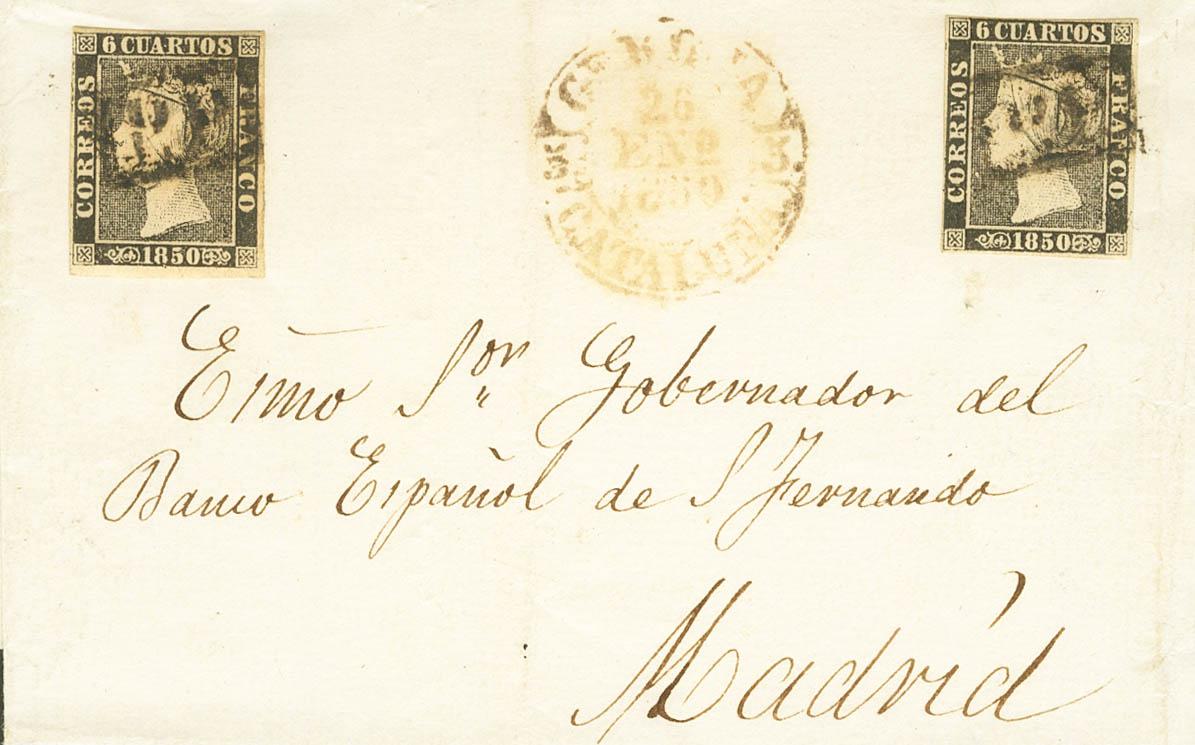 6 CUARTOS
CORREOS
FRANCO
1850
26
ENº
1850
CATALUÑA
6 CUARTOS
CORREOS
FRANCO
1850
Eimo Sor Gobernador del
Banco Español de S Fernando
Madrid